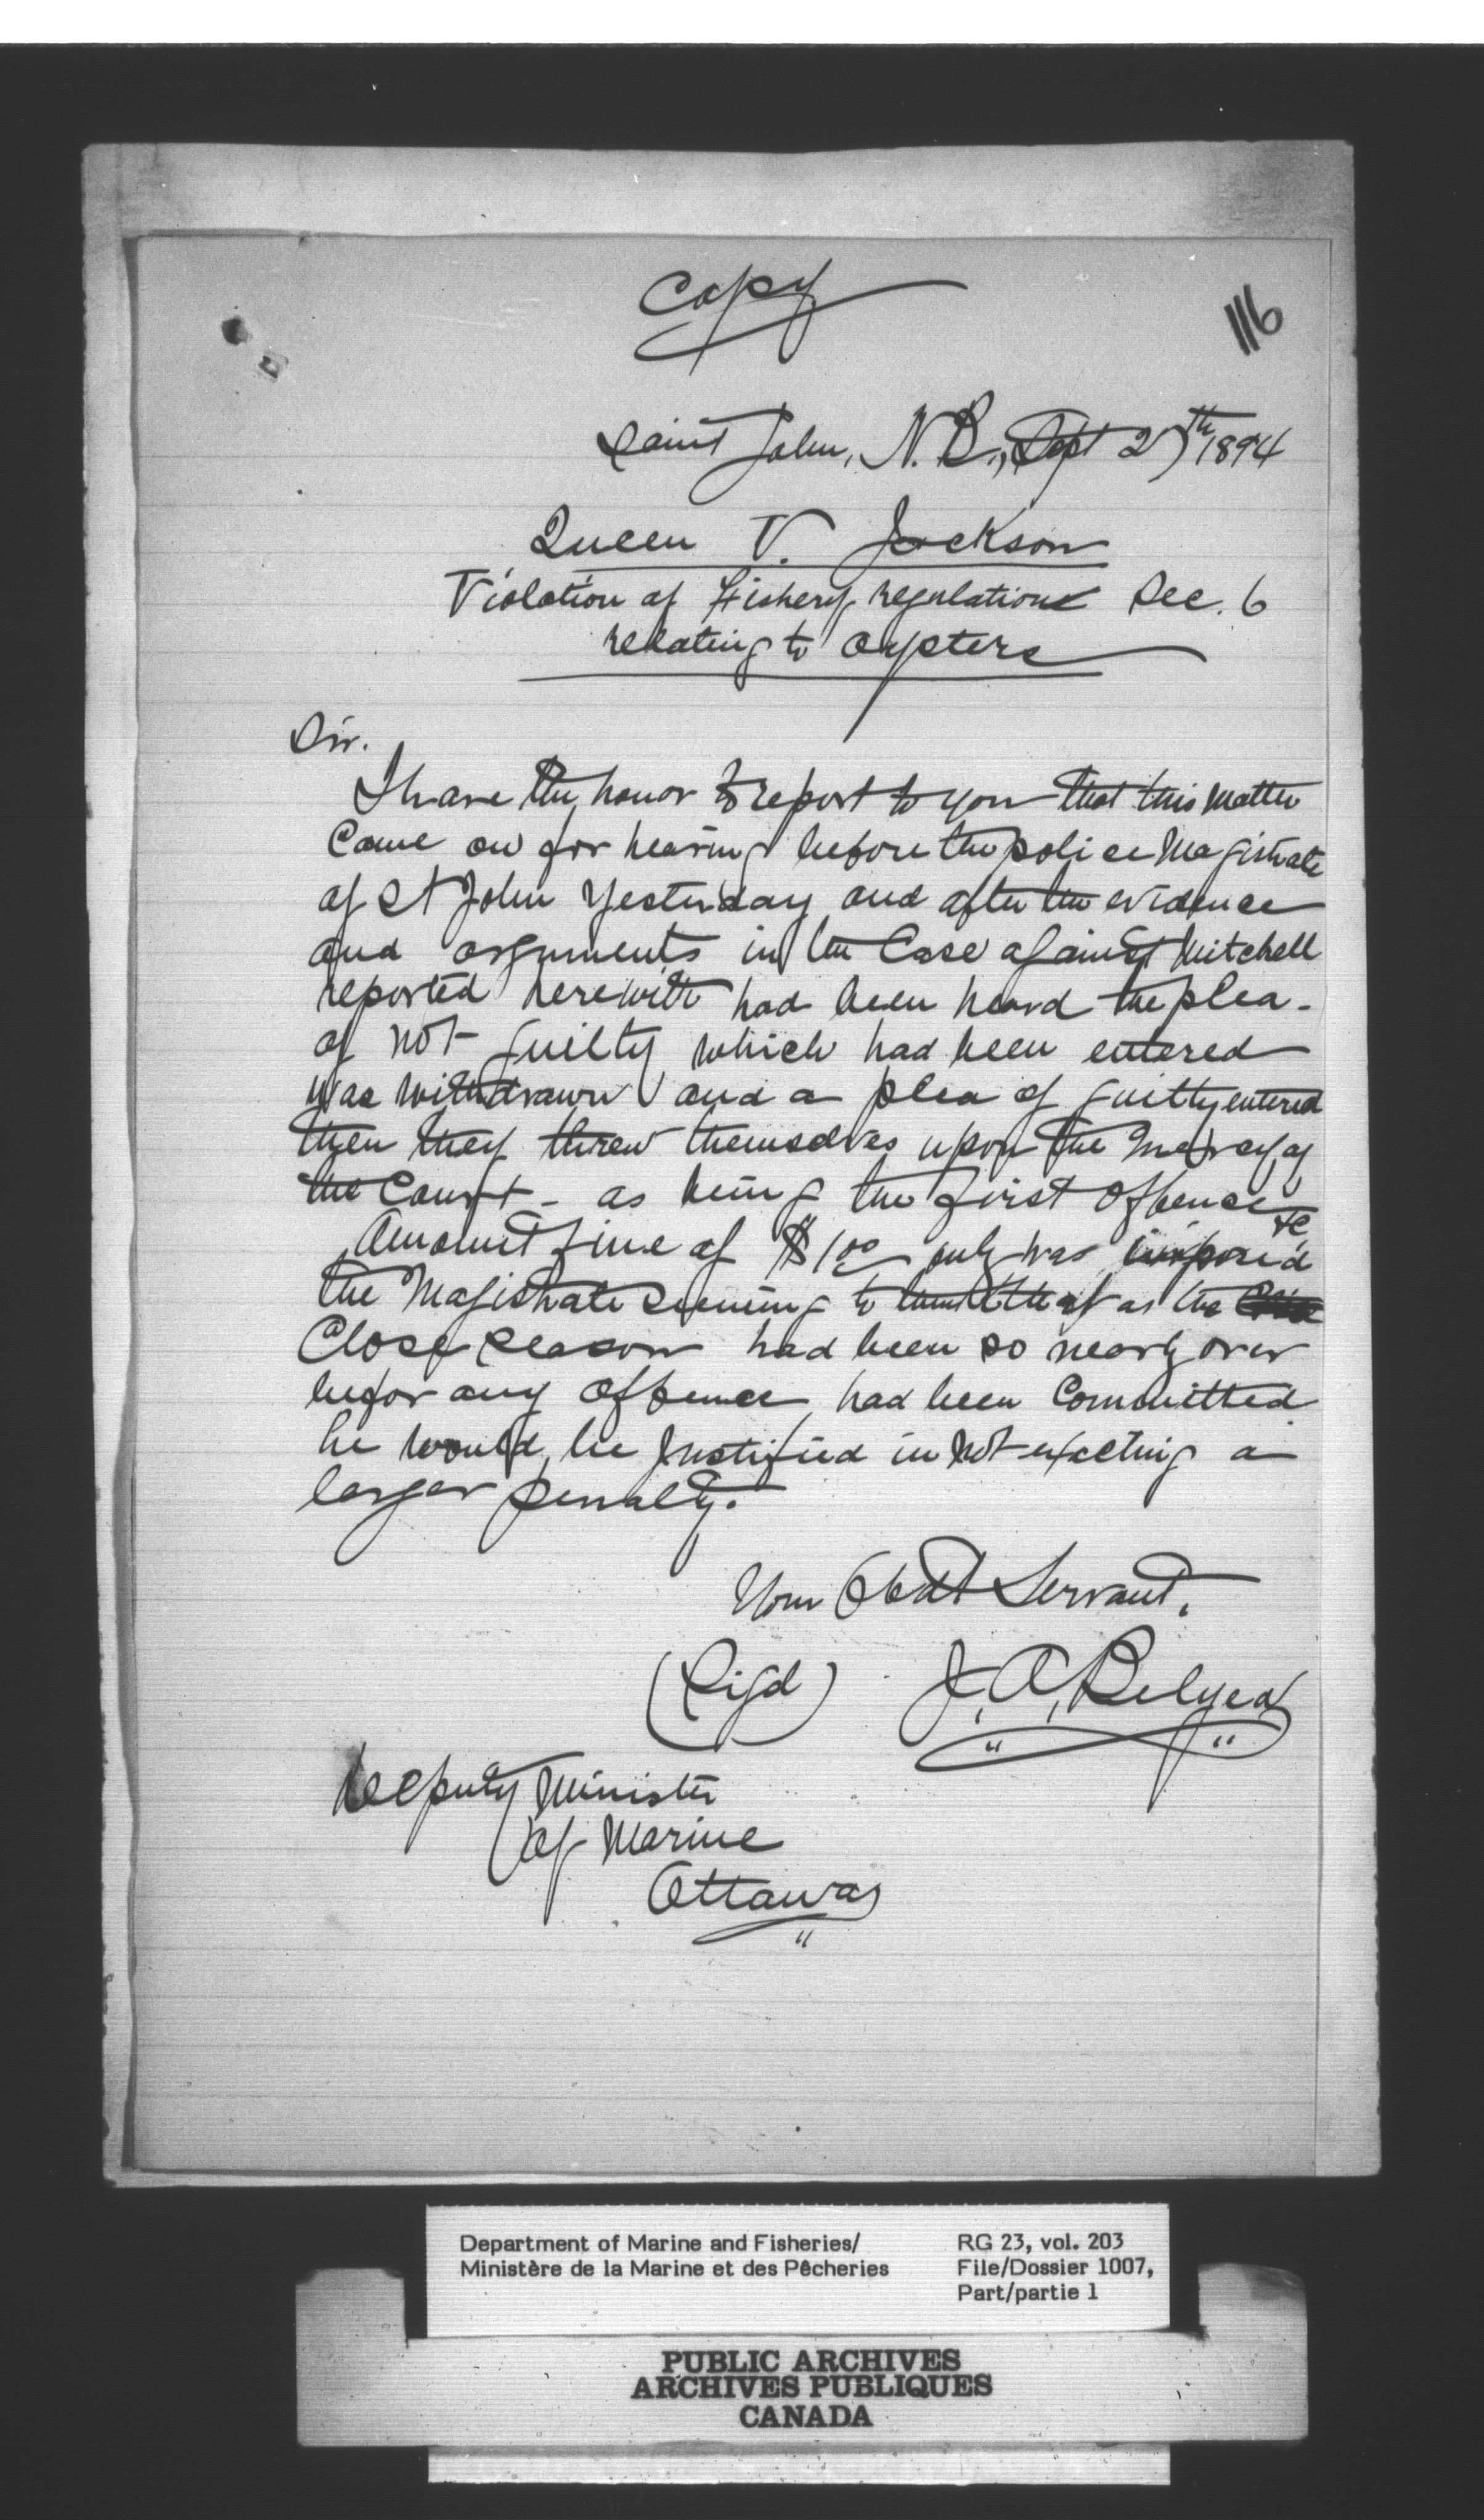 Copy
116
Saint John, N.B., Sept 27th 1894
Queen V. Jackson
Violation of Fishery regulations Sec. 6
relating to oysters
Sir.
I have the honor to report to you that this matter
Came on for hearing before the police Magistrate
of St John yesterday and after the evidence
and arguments in the Case against Mitchell
reported herewith had been heard the plea-
of not guilty which had been entered
was withdrawn and a plea of guilty entered
then they threw themselves upon the mercy of
the Court - as being the first offence &c
Amount fine of $1.00 only was imposed
the Magistrate seeming to think that as the
Close season had been so nearly over
befor any offence had been Committed
he would be justified in not exacting a
larger penalty.
Your Obdt Servant.
(Sigd) J. A. Belyea
Deputy Minister
of Marine
Ottawa
Department of Marine and Fisheries/ RG 23, vol. 203
Ministère de la Marine et des Pêcheries File/Dossier 1007,
Part/partie 1
PUBLIC ARCHIVES
ARCHIVES PUBLIQUES
CANADA